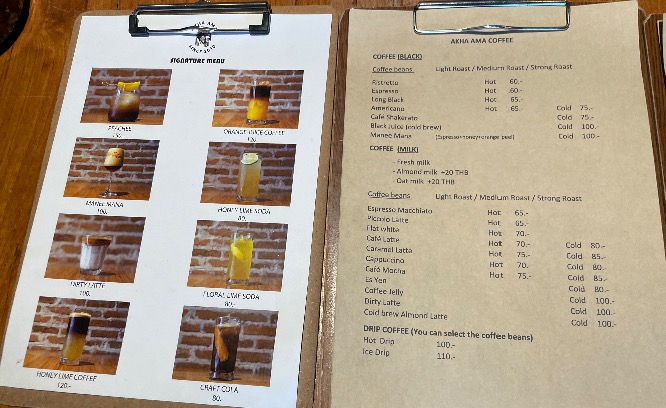 AKHA AMA
SINCE 2010
SIGNATURE MENU
PEACHEE
ORANGE JUICE COFFEE
120.-
MANEE MANA
100.-
HONEY LIME SODA
80.-
DIRTY LATTE
100.-
FLORAL LIME SODA
80.-
HONEY LIME COFFEE
120.-
CRAFT COLA
80.-
AKHA AMA COFFEE
COFFEE (BLACK)
Coffee beans Light Roast / Medium Roast / Strong Roast
Ristretto Hot 60.-
Espresso Hot 60.-
Long Black Hot 65.-
Americano Hot 65.- Cold 75.-
Café Shakerato Cold 75.-
Black Juice (cold brew) Cold 100.-
Manee Mana (Espresso+honey+orange peel) Cold 100.-
COFFEE (MILK)
- Fresh milk
- Almond milk +20 THB
- Oat milk +20 THB
Coffee beans Light Roast / Medium Roast / Strong Roast
Espresso Macchiato Hot 65.-
Piccolo Latte Hot
Flat white Hot 70.-
Café Latte Hot 70.- Cold 80.-
Caramel Latte Hot 75.- Cold 85.-
Cappuccino Hot 70.- Cold 80.-
Café Mocha Hot 75.- Cold 85.-
Es Yen Cold
Coffee Jelly Cold 100.-
Dirty Latte Cold 100.-
Cold brew Almond Latte Cold 100.-
DRIP COFFEE (You can select the coffee beans)
Hot Drip 100.-
Ice Drip 110.-